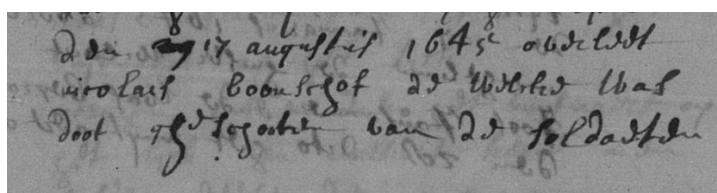 den 17 augustis 1645 overledt
nicolais boonschot de welcke was
doot gheschooten van de soldaeten